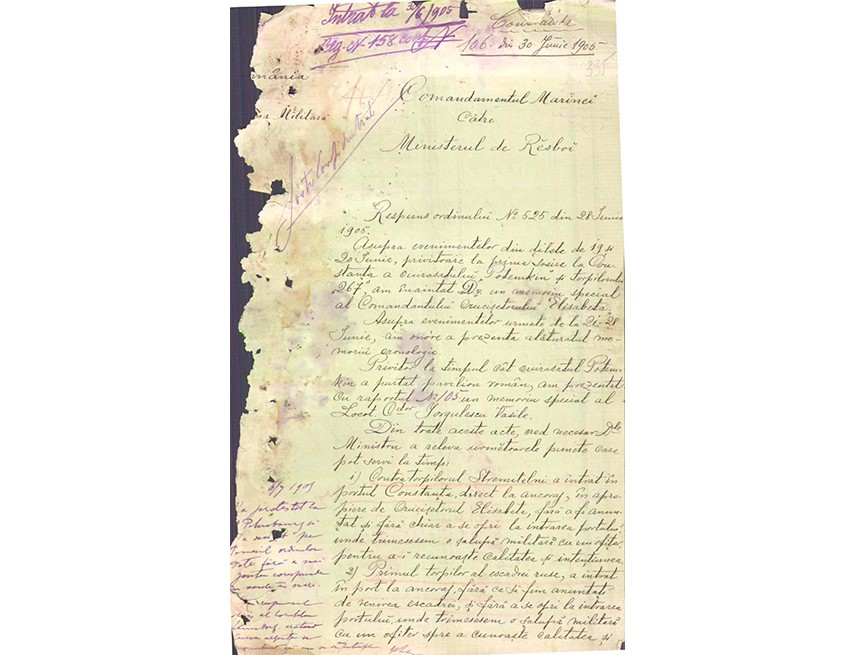 Intrat la 30/6 1905
Reg. No 158 conf
Constanta
166 din 30 Iunie 1905
335
mânia
Militară
Foarte Confidential
Comandamentul Marinei
Către
Ministerul de Rĕsboi
Respuns ordinului No 525 din 28 Iunie
1905.
Asupra evenimentelor din dilele de 19 si
20 Iunie, privitoare la prima sosire la Con-
stanta a cuirasatului "Potemkin" și torpilorului
"267", am înaintat Dv. un memoriu special
al Comandantului Crucișetorului Elisabeta.
Asupra evenimentelor urmate de la 21-28
Iunie, am onore a prezenta alăturatul me-
moriu cronologic.
Privitor la timpul cât cuirasatul Potem-
kin a purtat pavilion român, am prezentat
cu raportul No /05 un memoriu special al
Locot. Cdor Iorgulescu Vasile.
Din toate aceste acte, cred necesar Dle
Ministru a releva următoarele puncte care
pot servi la timp:
1) Contra torpilorul Stremitelni a intrat în
portul Constanța, direct la ancoraj, în apro-
piere de Crucișetorul Elisabeta, fără a fi anun-
tat și fără chiar a se opri la intrarea portului,
unde trimesesem o șalupă militară cu un ofițer,
pentru a-i recunoaște calitatea și intențiunea.
2) Primul torpilor al escadrei ruse, a intrat
în port la ancoraj, fără ca să fim anuntat
de venirea escadrei, și fără a se opri la intrarea
portului, unde trimesesem o șalupă militară
cu un ofițer spre a cunoaște calitatea și
1905
a protestat la
Petersburg și
pe
ordinelor
fără a mai